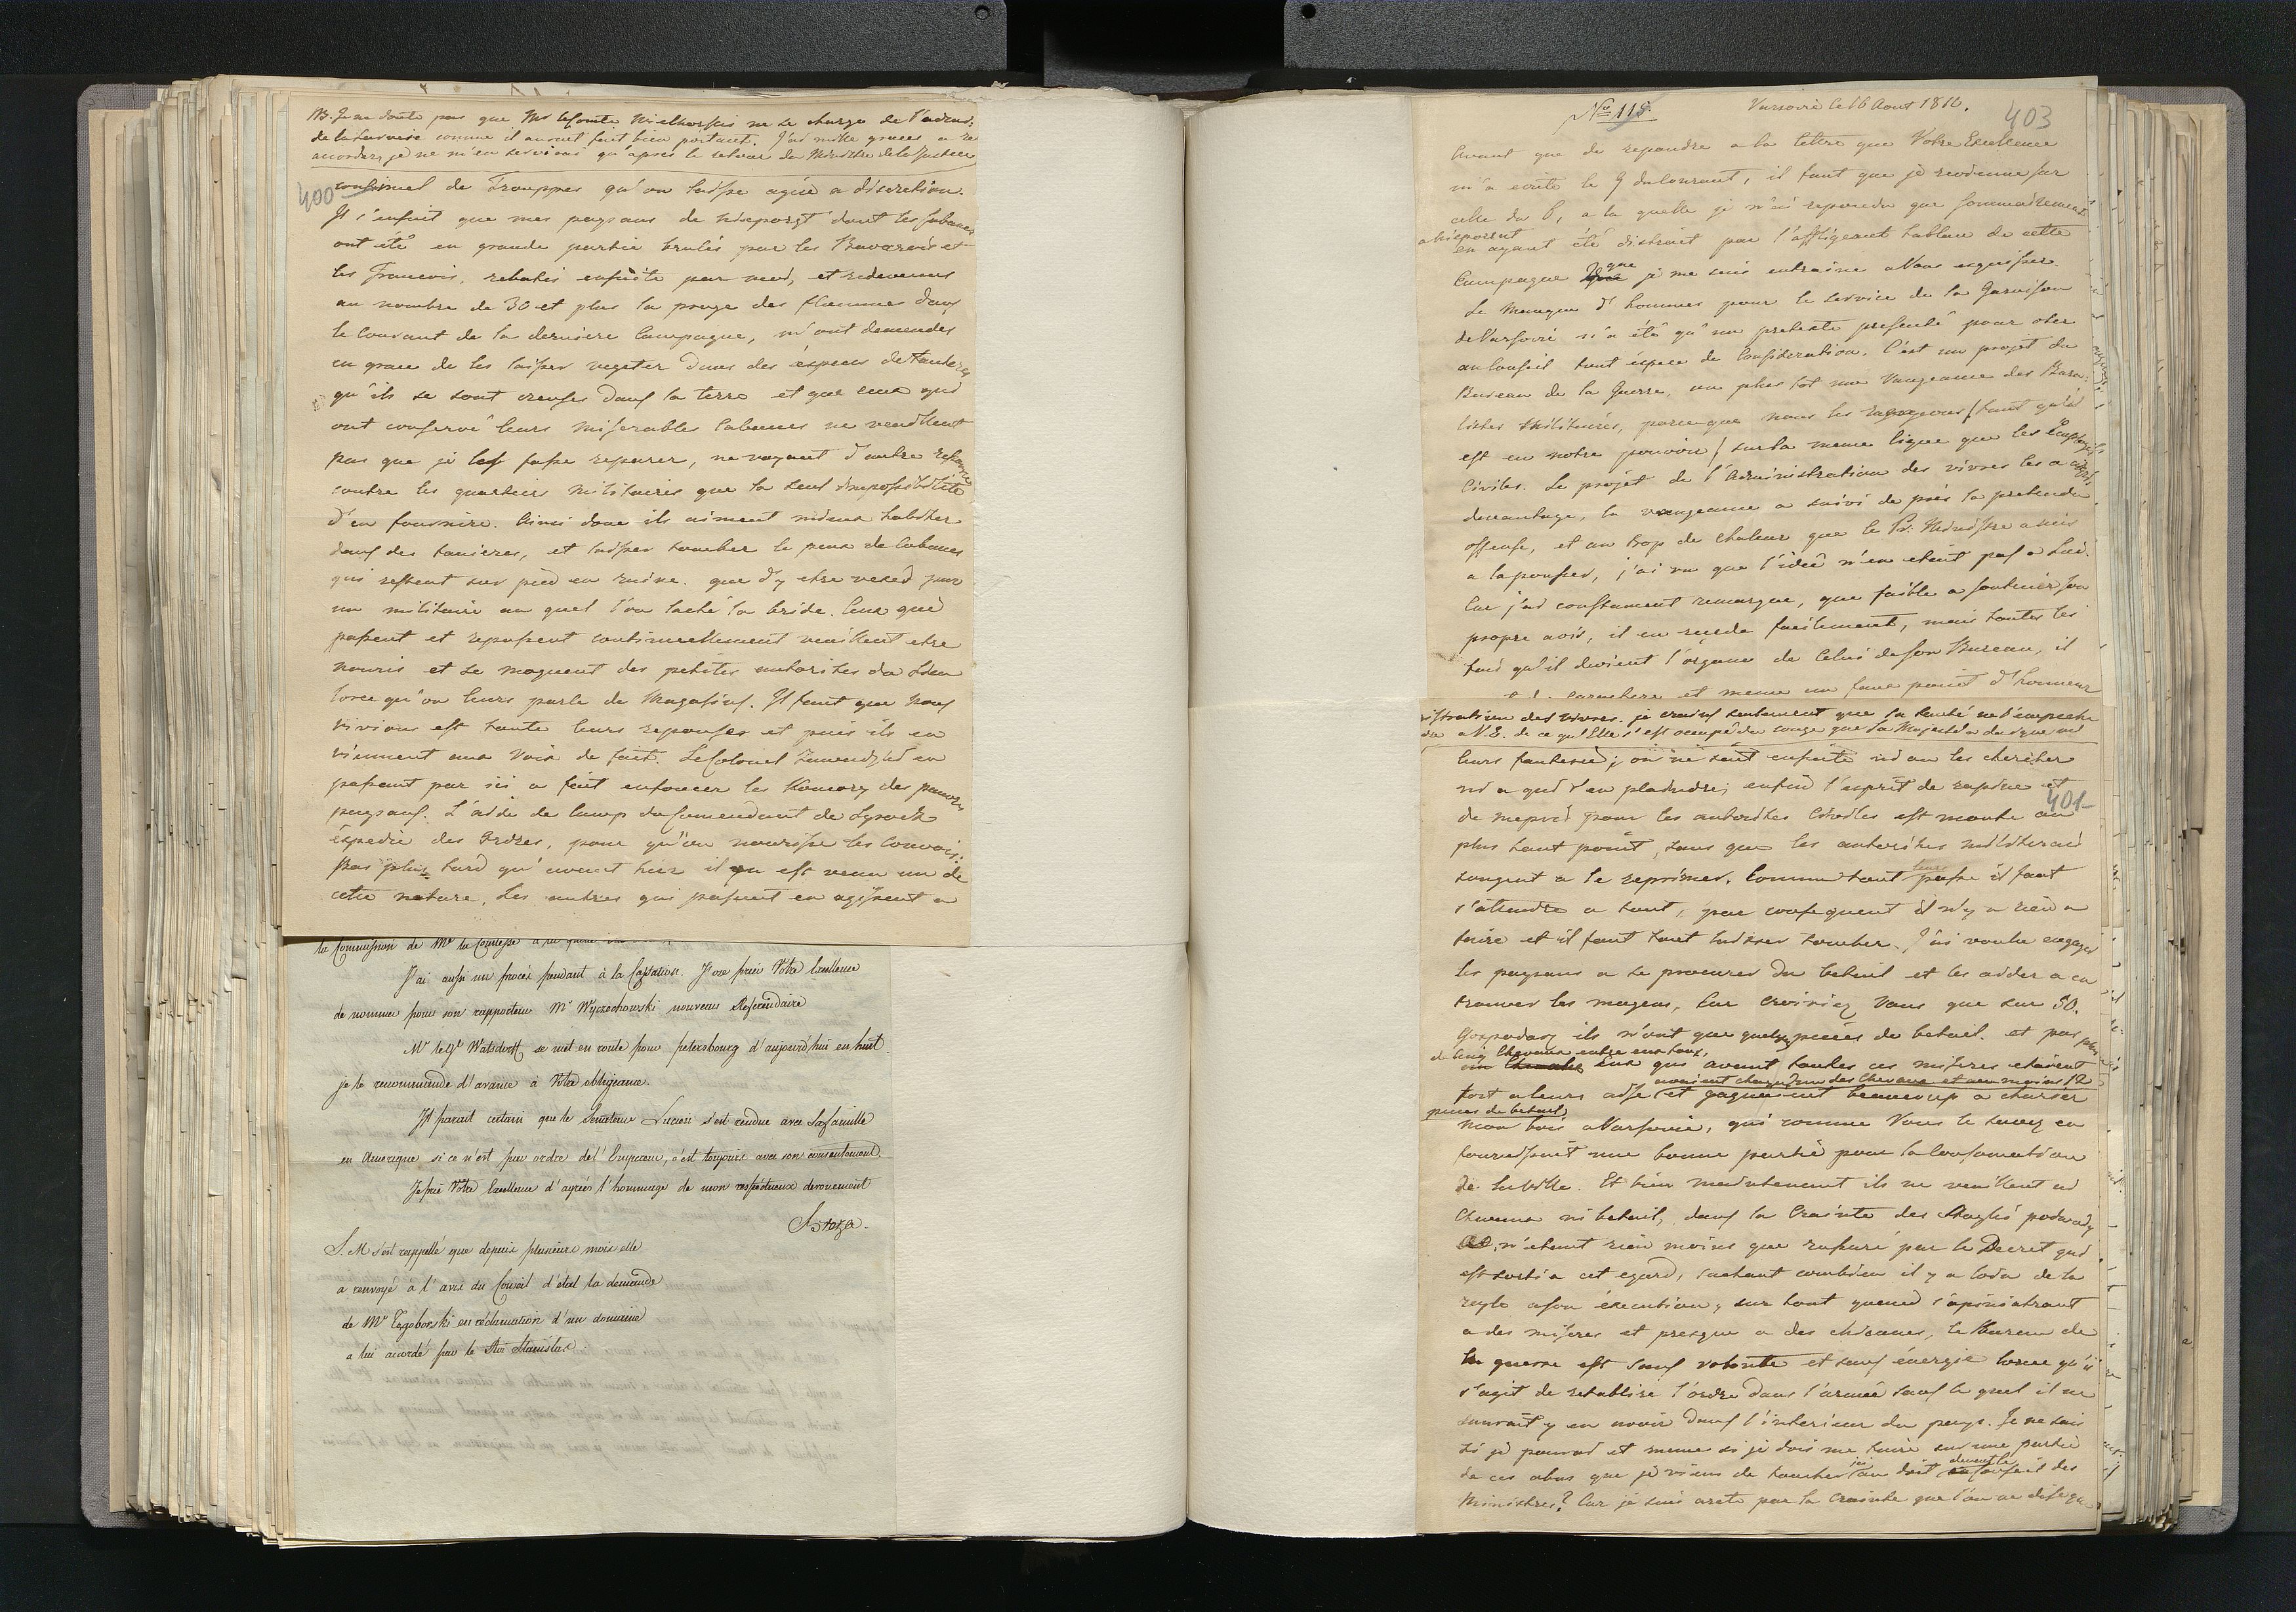 NB. Je ne doute pas que Mr le Comte Wielhorski ne se charge de l'admi:
de la Guerre comme il auroit fait bien portant. J'ai mille graces a
accordez, je ne m'en servirai qu'apres le retour du Ministre de la Justice
400
continuel de Trouppes qu'on laisse agir a discretion.
Il s'ensuit que mes paysans de Nieporęt dont les cabanes
ont été en grande partie brulés par les Bavarois et
les Francois, rebatis ensuite par moi, et redevenues
au nombre de 30 et plus la proye des flammes dans
le Courant de la derniere Campagne, m'ont demandés
en grace de les laisser vegeter dans des especes de tanieres
qu'ils se sont creusés dans la terre et que ceux qui
ont conservé leurs miserables Cabanes ne veuillent
pas que je les fasse reparer, ne voyant d'autre
contre les quartiers militaires que la seul impossibilité
d'en fournire. Ainsi donc ils aiment mieux habiter
dans des tanieres, et laisser tomber le peux de Cabanes
qui restent sur pied en ruine. que d'y etre vexés par
un militaire au quel l'on laché la bride. Ceux qui
passent et repassent continuellement veuillent etre
nouris et se moquent des petites autorités du Lieu
lorsqu'on leurs parle de Magasins. Il faut que nous
vivions est toute leurs reponses et puis ils en
viennent aux Voix de fait. Le Colonel en
passant par ici a fait enfoncer les Komory des pauvres
paysans. L'aide de Camp du Comendant de Sierock
éxpedie des Ordres, pour qu'on nourisse les Convois:
pas plus tard qu'avant hier il en est venu un de
cette nature. Les autres qui passent en agissent a
la Commission de Me la Comtesse
J'ai aussi un procès pendant à la Cassation. J'ose prier Votre Excellence
de nommer pour son rapporteur Mr Wyczechowski nouveau Referendaire
Mr le Gl Watsdorff se met en route pour petersbourg d'aujourd'hui en huit.
je le recommande d'avance à Votre obligeance.
Il parait certain que le Senateur Lucien s'est rendue avec sa famille
en Amerique si ce n'est par ordre de l'Empereur, c'est toujours avec son consentement
Je prie Votre Excellence d'agréer l'hommage de mon respectueux devouement
Breza.
S. M s'est rappellé que depuis plusieurs mois elle
a renvoyé à l'avis du Conseil d'état la demande
de Mr Tęgoborski en réclamation d'un domaine
a lui accordé par le Roi Stanislas
No 118.
Varsovie le 16 Aout 1810.
403
Avant que de repondre a la lettre que Votre Excellence
m'a ecrite le 9 du Courant, il faut que je revienne sur
celle du 6, a la quelle je n'ai repondu que sommairement
a Nieporent
en ayant été distrait par l'affligeant tableau de cette
que
Campagne je me suis entraine a Vous esquisser.
Le Manque d'hommes pour le service de la Garnison
de Varsovie n'a été qu'un pretexte presenté pour oter
au Conseil tout espece de Consideration. C'est un projet du
Bureau de la Guerre, ou plus tot une Vangeance des Bura:
listes Militaires, parceque nous les rangeons (tant qu'il
est en notre pouvoir) sur la meme ligne que les Employés
Civiles. Le projet de l'Administration des vivres les a
davantage, la vangeance a suivi de près la pretendu
offense, et au trop de chaleur que le Pr: Ministre a mis
a la pousser, j'ai vu que l'idée n'en etait pas a Lui.
Car j'ai constament remarque, que faible a soutenir son
propre avis, il en recede facilement, mais toutes les
fois qu'il devient l'organe de Celui de son Bureau, il
caractere et meme un faux point d'honneur
istration des vivres. je crains seulement que sa santé ne l'empeche
a V.E. de ce qu'Elle s'est occupé du conge que Sa Majesté a daigne
leurs fantesie; on ne sait ensuite ni ou les chercher
ni a qui s'en plaindre; enfin l'esprit de rapine et
401
de mepris pour les autorites Civiles est monte au
plus haut point, sans que les autorites militaires
leur
songent a le reprimer. Comme tout passe il faut
s'attendre a tout, par consequent il n'y a rien a
faire et il faut tout laisser tomber. J'ai voulu engager
les paysans a se procurer du betail et les aider a en
trouver les moyens, Car croiriez Vous que sur 50.
Gospodarz ils n'ont que quelques pieces de betail. et pas plus
de cinq Chevaux entre eux tous,
eux qui avant toutes ces miseres etoient
avaient chacun des Chevaux et au moins 12
fort a leurs aise et gagnoient beaucoup a charier
pieces de betail,
mon bois a Varsovie, qui comme Vous le savez en
fournissoit une bonne partie pour la Consomation
de la Ville. Et bien maintenant ils ne veuillent ni
Chevaux ni betail, dans la Crainte des Ciągłé podwody
n'etant rien moins que rassuré par le Decret qui
est sorti a cet egard, sachant combien il y a loin de la
regle a son éxecution, sur tout quand s'opiniatrant
a des miseres et presque a des chicanes, le Bureau de
la guerre est sans volonte et sans énergie lorsqu'il
s'agit de retablire l'ordre dans l'armée sans le quel il ne
sauroit y en avoir dans l'interieur du pays. Je ne sais
si je pourrai et meme si je dois me taire sur une partie
de ces abus que je viens de toucher du doit Conseil des
Ministres? Car je suis areté par la Crainte que l'on ne dise que